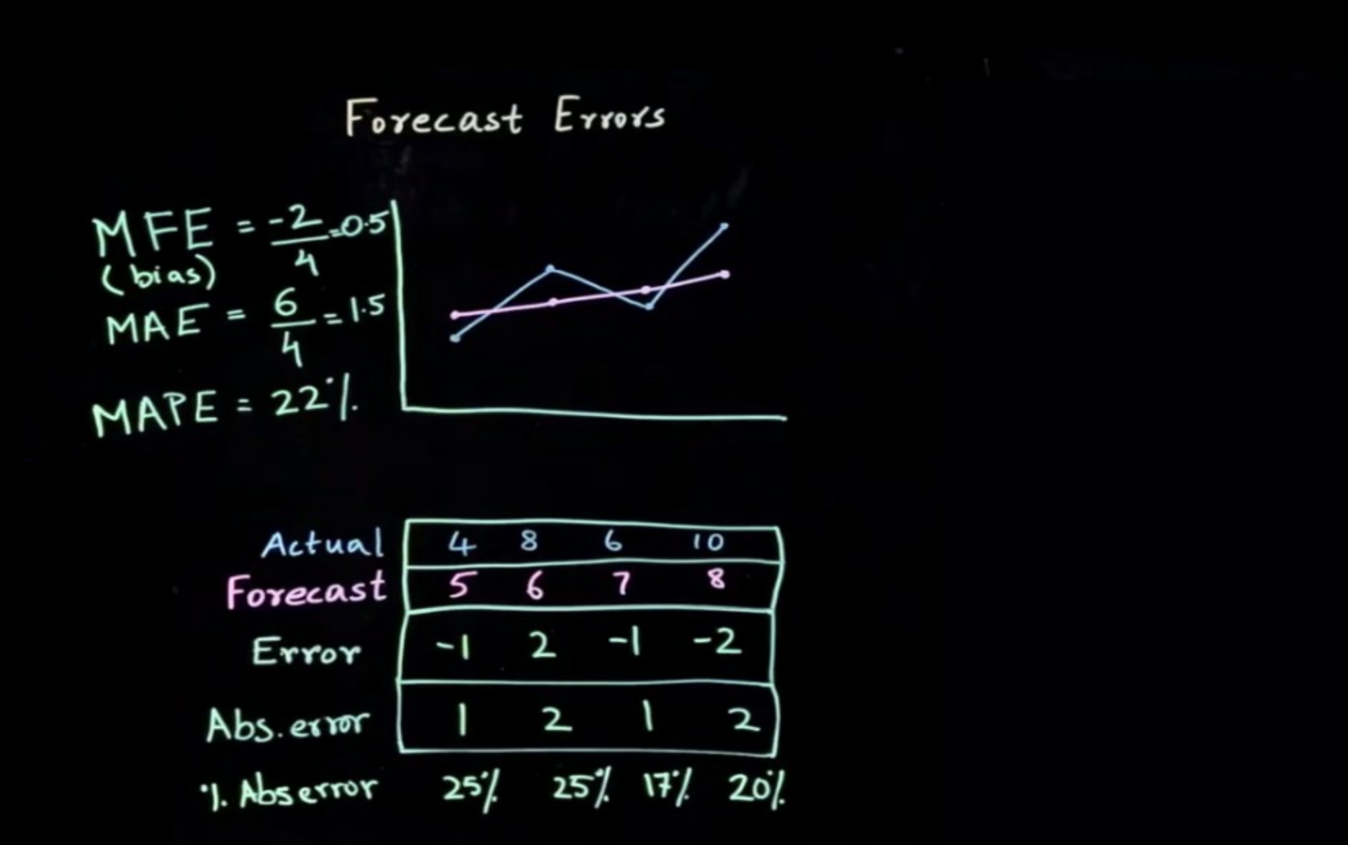 Forecast Errors
MFE = -2/4 = 0.5
(bias)
MAE = 6/4 = 1.5
MAPE = 22%
Actual 4 8 6 10
Forecast 5 6 7 8
Error -1 2 -1 -2
Abs. error 1 2 1 2
% Abs error 25% 25% 17% 20%